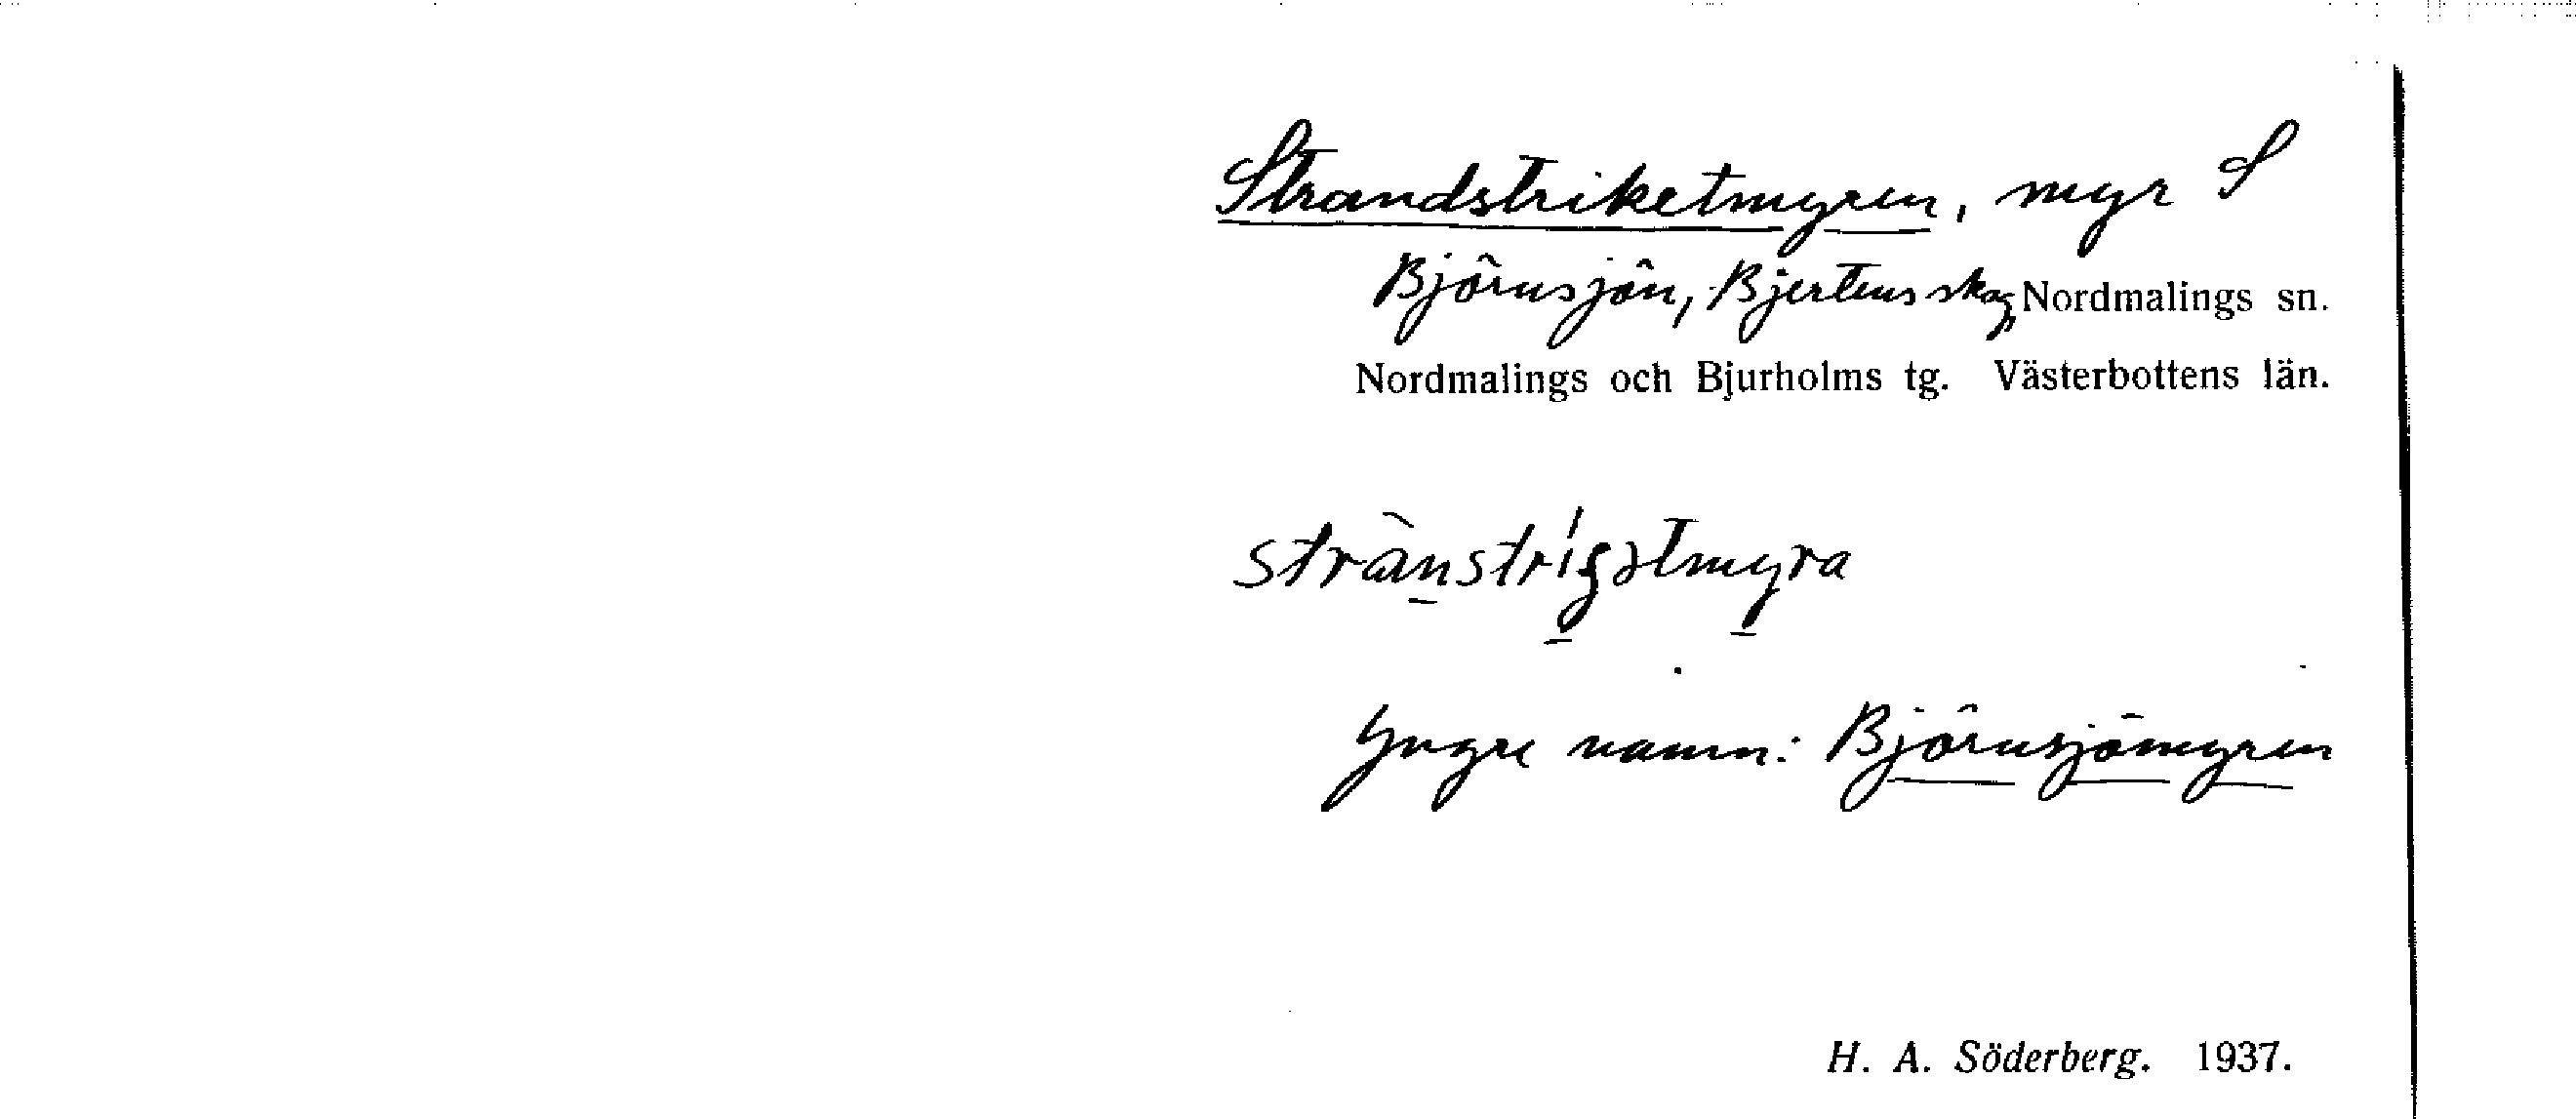 Strandstriketmyren, myr S
Björnsjön, Bjertens skog, Nordmalings sn.
Nordmalings och Bjurholms tg. Västerbottens län.
strànstrígətmyra
Yngre namn: Björnsjömyren
H. A. Söderberg. 1937.